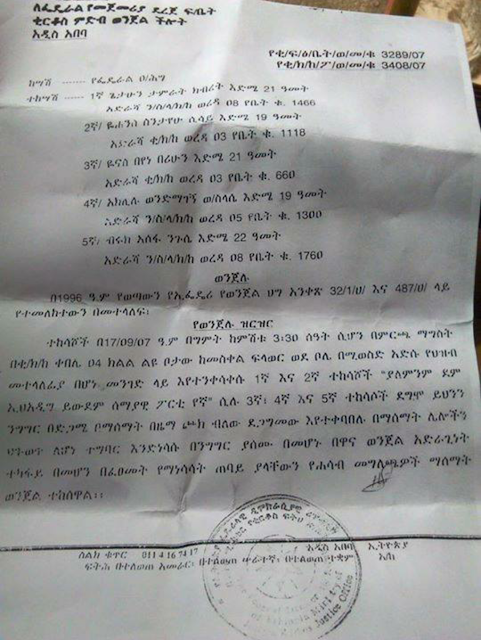 ለፌዴራል የመጀመሪያ ደረጃ ፍ/ቤት
ቂርቆስ ምድብ ወንጀል ችሎት
አዲስ አበባ
የቂ/ፍ/ዕ/ቤት/ወ/መ/ቁ 3289/07
የቂ/ክ/ክ/ፖ/ወ/መ/ቁ 3408/07
ከሣሽ ------ የፌዴራል ዐ/ሕግ
ተከሣሽ ----- 1ኛ ጌታሁን ታምራት ክብረት እድሜ 21 ዓመት
አድራሻ ን/ስ/ላ/ክ/ከ ወረዳ 08 የቤት ቁ. 1466
2ኛ/ ዮሐንስ ስንታየሁ ሲሳይ እድሜ 19 ዓመት
አድራሻ ቂ/ክ/ከ ወረዳ 03 የቤት ቁ. 1118
3ኛ/ ዬናስ በየነ በሪሁን እድሜ 21 ዓመት
አድራሻ ቂ/ክ/ከ ወረዳ 03 የቤት ቁ. 660
4ኛ/ አክሊሉ ወንድማገኝ ወ/ስላሴ እድሜ 19 ዓመት
አድራሻ ን/ስ/ላ/ክ/ከ ወረዳ 05 የቤት ቁ. 1300
5ኛ/ ብሩክ አሰፋ ንጉሴ እድሜ 22 ዓመት
አድራሻ ን/ስ/ላ/ክ/ከ ወረዳ 08 የቤት ቁ. 1760
ወንጀሉ
በ1996 ዓ.ም የወጣውን የኢፌዴሪ የወንጀል ህግ አንቀጽ 32/1/ሀ/ እና 487/ሀ/ ላይ
የተመለከተውን በመተላለፍ፡
የወንጀሉ ዝርዝር
ተከሳሾች በ17/09/07 ዓ.ም በግምት ከምሽቱ 3፡30 ሰዓት ሲሆን በምርጫ ማግስት
በቂ/ክ/ከ ቀበሌ 04 ክልል ልዩ ቦታው ከመስቀል ፍላወር ወደ ቦሌ በሚወስድ አድሱ የህዝብ
መተላለፊያ በሆነ መንገድ ላይ እየተንቀሳቀሱ 1ኛ እና 2ኛ ተከሳሾች "ያለምንም ደም
ኢህአዲግ ይውደም ሰማያዊ ፖርቲ የኛ" ሲሉ 3ኛ፣ 4ኛ እና 5ኛ ተከሳሾች ደግሞ ይህንን
ንግግር በድጋሚ በማሰማት በዜማ ጮክ ብለው ደጋግመው እየተቀባበሉ በማሰማት ሌሎችን
ለሆነ ተግባር እንድነሳሱ በንግግር ያሰሙ በመሆኑ በዋና ወንጀል አድራጊነት
ተካፋይ በመሆን በፈፀመት የማነሳሳት ጠባይ ያላቸውን የሐሳብ መግለጫዎች ማሰማት
ወንጀል ተከሰዋል፡፡
አዲስ አበባ ኢትዮጵያ
ስልክ ቁጥር 011 4 16 74 17
ፍትሕ በተለወጠ አመራር፣ በተለወጠ ሠራተኛ፣ በተለወጠ ተቋም
Justice Office